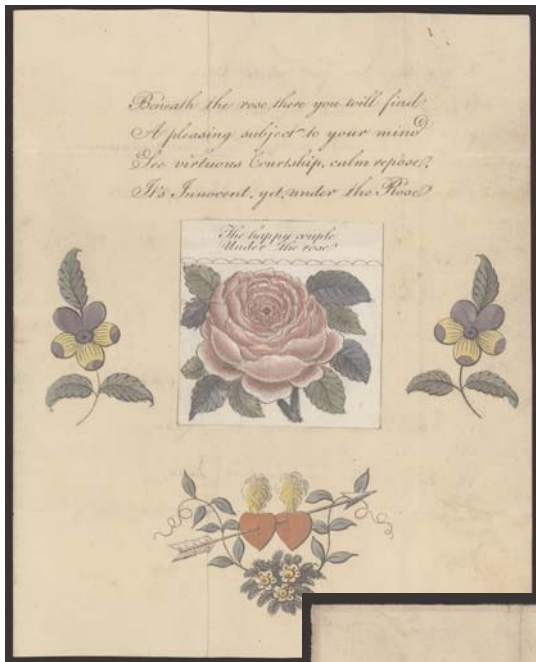 Beneath the rose, there you will find
A pleasing subject to your mind
See virtuous Courtship, calm repose,
It's Innocent, yet, under the Rose
The happy couple
Under the rose